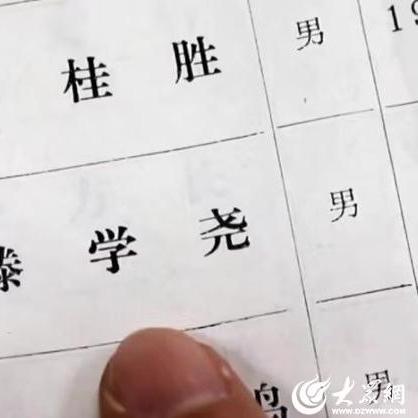 桂胜 男 19
滕学尧 男
男
大众網
WWW.DZWWW.COM